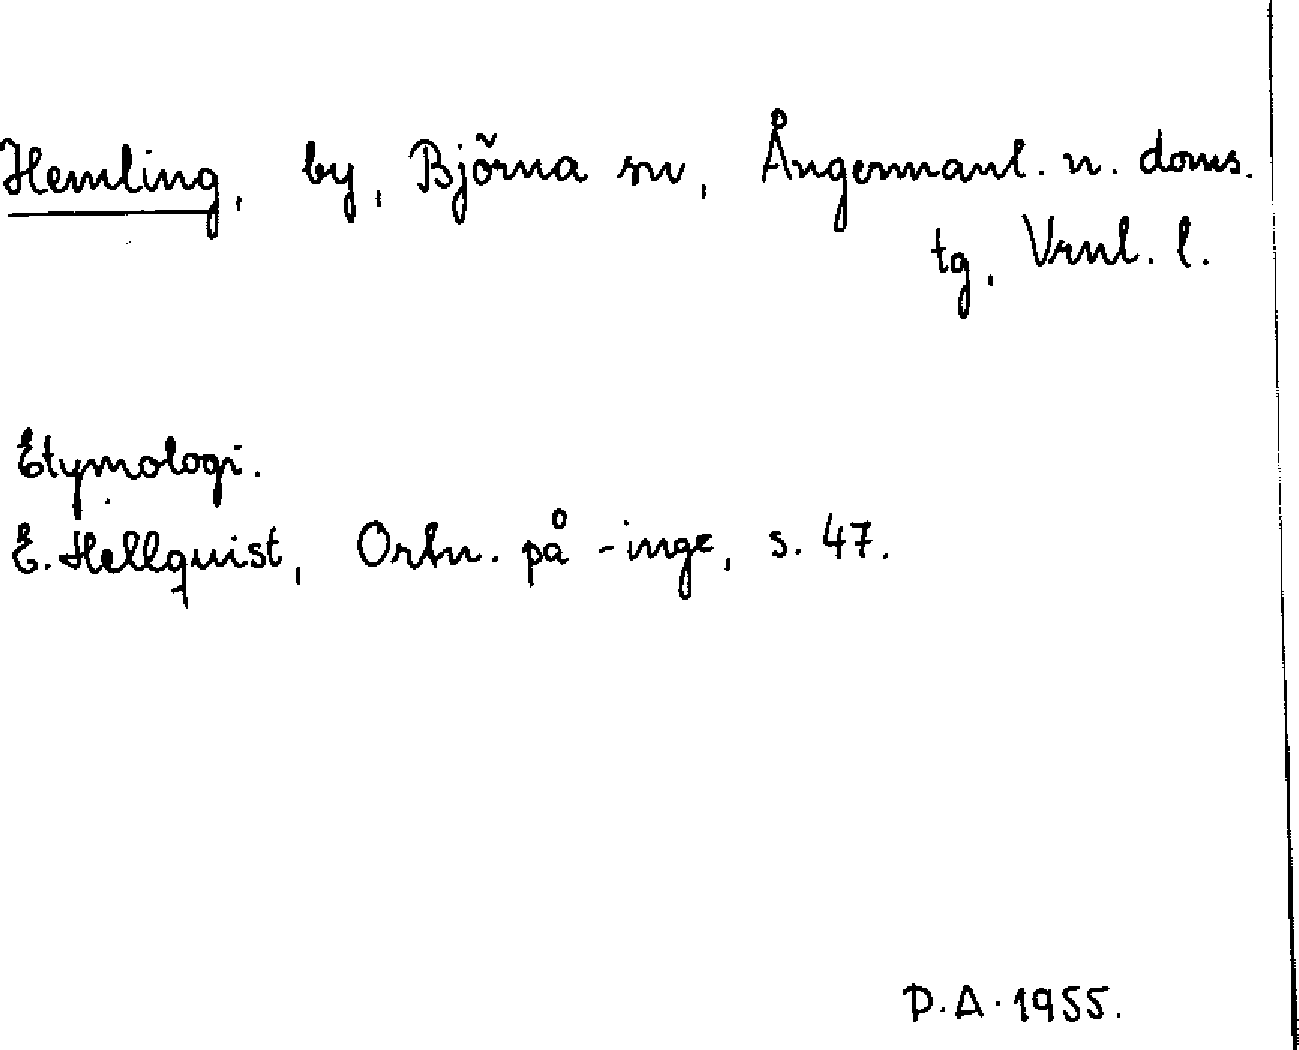 Hemling, by, Björna sn, Ångermanl. n. doms.
tg, Vrnl. l.
Etymologi.
E. Hellquist, Ortn. på -inge, s. 47.
D.A. 1955.